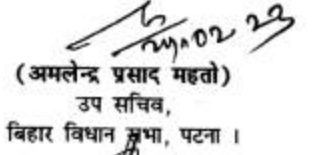 (अमलेन्द्र प्रसाद महतो)
उप सचिव,
बिहार विधान सभा, पटना ।